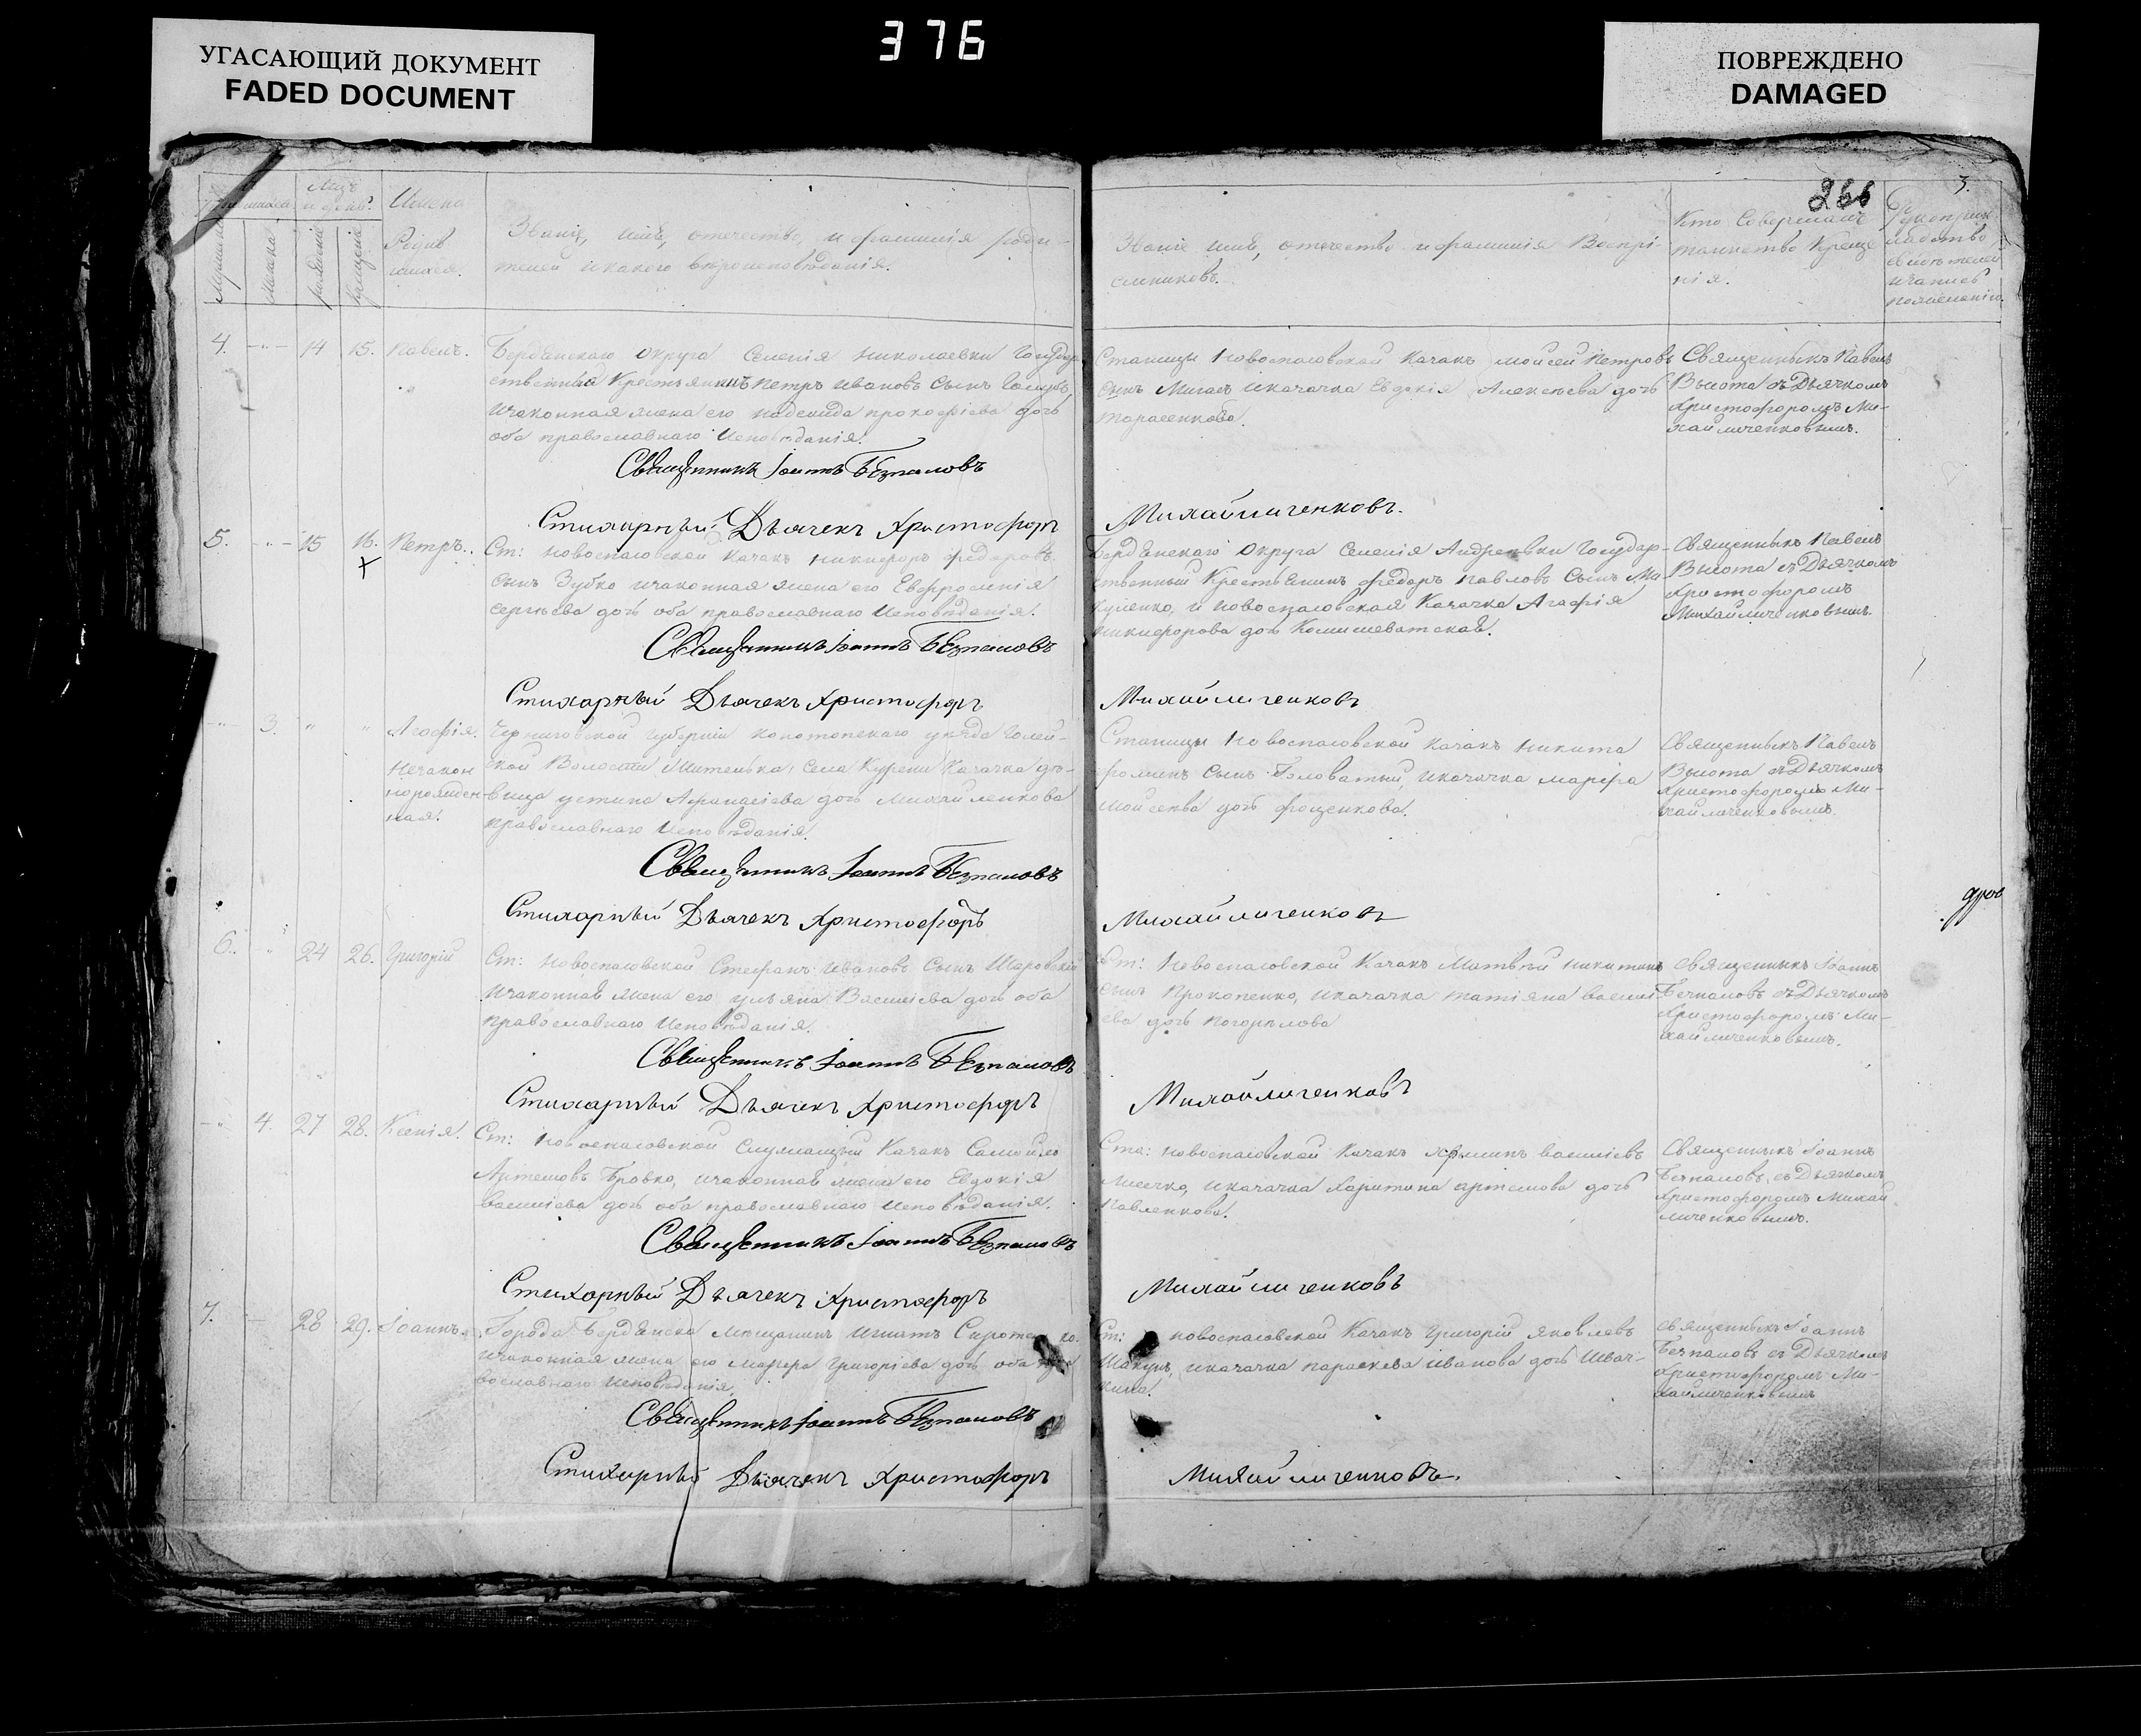 376
УГАСАЮЩИЙ ДОКУМЕНТ
FADED DOCUMENT
ПОВРЕЖДЕНО
DAMAGED
266
3.
Имена
Родив
шихся.
Званіе, имя, отечество, и фамилія роди-
телей и какого вѣроисповѣданія.
Званіе имя, отечество и фамилія Воспрі-
емниковъ.
Кто Совершалъ
таинство Креще
нія.
4. 14 15. Павелъ.
Бердянскаго Округа Селенія Николаевки Государ
ственный Крестьянинъ Петръ Ивановъ Сынъ
и законная жена его Надежда Прокофіева дочь
оба православнаго исповѣданія.
Станицы Новоспасовской Казакъ Мойсей Петровъ
сынъ Мигаль и казачка Евдокія Алексѣева дочь
Тарасенкова.
Священникъ Павелъ
Высота съ Дьячкомъ
Христофоромъ Ми-
хайличенковымъ.
Священникъ Іоаннъ Безпаловъ
Стихарный Дьячекъ Христофоръ Михайличенковъ.
5. 15 16. Петръ.
Ст: Новоспасовской Казакъ Никифоръ Федоровъ
сынъ Зубко и законная жена его Евфросинія
Сергѣева дочь оба православнаго исповѣданія.
Бердянскаго Округа Селенія Андреевки Государ-
ственный Крестьянинъ Федоръ Павловъ Сынъ Ми-
куленко, и Новоспасовская Казачка Агафія
Никифорова дочь Камышеватская.
Священникъ Павелъ
Высота съ Дьячкомъ
Христофоромъ
Михайличенковымъ.
Священникъ Іоаннъ Безпаловъ
Стихарный Дьячекъ Христофоръ Михайличенковъ
3. " " Агафія.
Незакон
норожден
ная.
Черниговской Губерніи Конотопскаго уѣзда
ской Волости, села Курени Казачка дѣ-
вица Устина Афанасіева дочь Михайленкова
православнаго исповѣданія.
Станицы Новоспасовской Казакъ Никита
Фоминъ Сынъ Головатый, и казачка Марфа
Мойсеева дочь Фоценкова.
Священникъ Павелъ
Высота съ Дьячкомъ
Христофоромъ Ми-
хайличенковымъ.
Священникъ Іоаннъ Безпаловъ
Стихарный Дьячекъ Христофоръ Михайличенковъ
6. 24 26. Григорій
Ст: Новоспасовской Стефанъ Ивановъ Сынъ Шаровскій
и законная жена его Ульяна Василіева дочь оба
православнаго исповѣданія.
Ст: Новоспасовской Казакъ Матвѣй Никитинъ
сынъ Прокопенко, и казачка Татіяна Василі
ева дочь Погорѣлова
Священникъ Іоаннъ
Безпаловъ съ Дьячкомъ
Христофоромъ Ми-
хайличенковымъ.
Священникъ Іоаннъ Безпаловъ
Стихарный Дьячекъ Христофоръ Михайличенковъ
4. 27 28. Ксенія.
Ст: Новоспасовской Служащій Казакъ Самойло
Артемовъ Бровко, и законная жена его Евдокія
Василіева дочь оба православнаго исповѣданія.
Ста: Новоспасовской Казакъ Василіевъ
Лисечко, и казачка Харитина Артемова дочь
Павленкова.
Священникъ Іоаннъ
Безпаловъ, съ Дьячкомъ
Христофоромъ Михай
личенковымъ.
Священникъ Іоаннъ Безпаловъ
Стихарный Дьячекъ Христофоръ Михайличенковъ
7. 28 29. Іоаннъ.
Города Бердянска Мещанинъ Игнатъ
и законная жена его Марфа Григоріева дочь оба пра
вославнаго исповѣданія.
Ст: Новоспасовской Казакъ Григорій Яковлевъ
Шакунъ, и казачка Параскева Иванова дочь Швач-
кина.
Священникъ Іоаннъ
Безпаловъ съ Дьячкомъ
Христофоромъ Ми-
хайличенковымъ
Священникъ Іоаннъ Безпаловъ
Стихарный Дьячекъ Христофоръ Михайличенковъ.